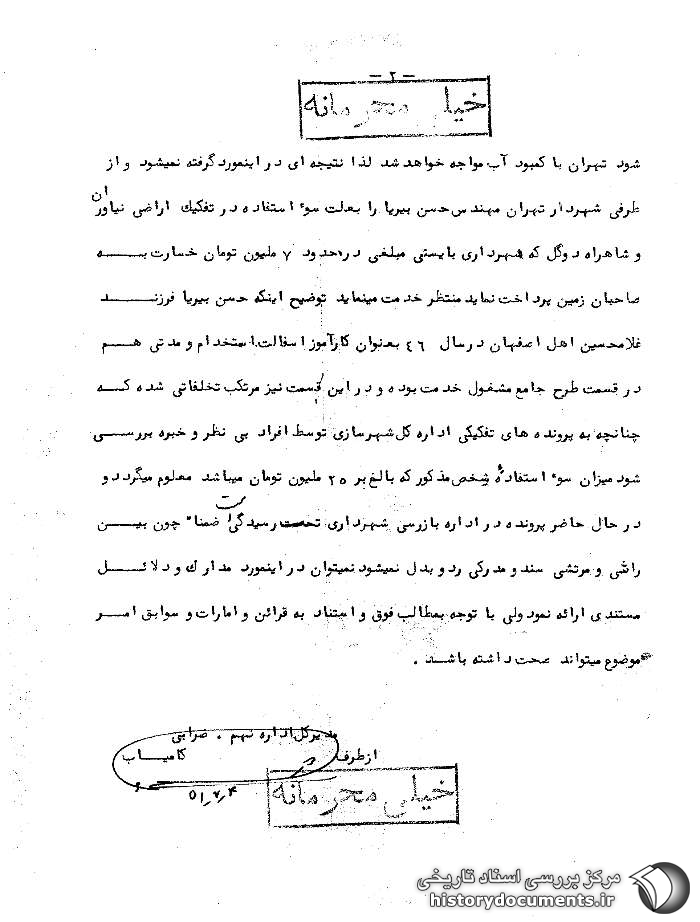 - ۲ -
خیلی محرمانه
شود تهران با کمبود آب مواجه خواهد شد لذا نتیجه ای در اینمورد گرفته نمیشود و از
طرفی شهردار تهران مهندس حسن بیریا را بعلت سوء استفاده در تفکیك اراضی نیاوران
و شاهراه دوگل که شهرداری بایستی مبلغی در حدود ۷ ملیون تومان خسارت بـــه
صاحبان زمین پرداخت نماید منتظر خدمت مینماید توضیح اینکه حسن بیریا فرزنـــد
غلامحسین اهل اصفهان در سال ٤٦ بعنوان کارآموز اسفالت استخدام و مدتی هـــم
در قسمت طرح جامع مشغول خدمت بوده و در این قسمت نیز مرتکب تخلفاتی شده کـــه
چنانچه به پرونده های تفکیکی اداره کل شهرسازی توسط افراد بی نظر و خبره بررســـی
شود میزان سوء استفاده شخص مذکور که بالغ بر ۲۵ ملیون تومان میباشد معلوم میگردد و
در حال حاضر پرونده در اداره بازرسی شهرداری تحت رسیدگی است ضمناً چون بیـــن
راشی و مرتشی سند و مدرکی رد و بدل نمیشود نمیتوان در اینمورد مدارك و دلائـــل
مستندی ارائه نمود ولی با توجه بمطالب فوق و استناد به قرائن و امارات و سوابق امـــر
موضوع میتواند صحت داشته باشـــد .
مدیرکل اداره نهم . ضرابی
از طرف کامیـــاب
۵۱٫۷٫۴
خیلی محرمانه
مرکز بررسی اسناد تاریخی
historydocuments.ir